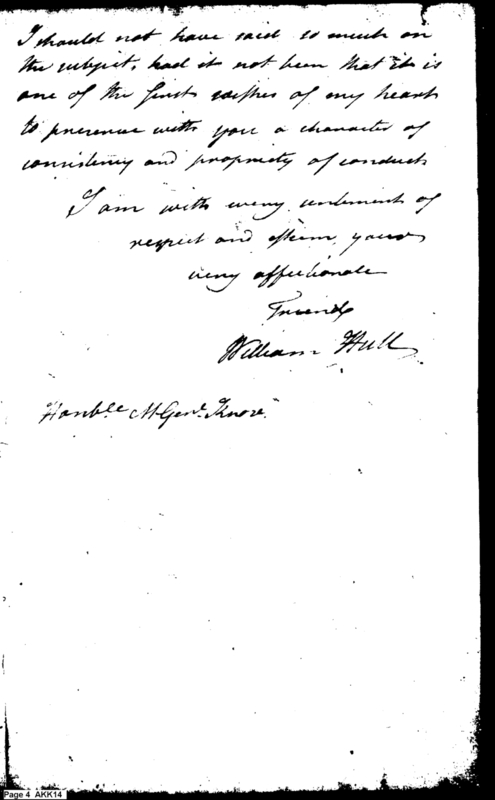 I should not have said so much on
the subject, had it not been that it is
one of the first wishes of my heart
to preserve with you a character of
consistency and propriety of conduct
I am with every sentiment of
respect and esteem your
very affectionate
Friend
William Hull
Honble. M Genl. Knox
Page 4 AKK14